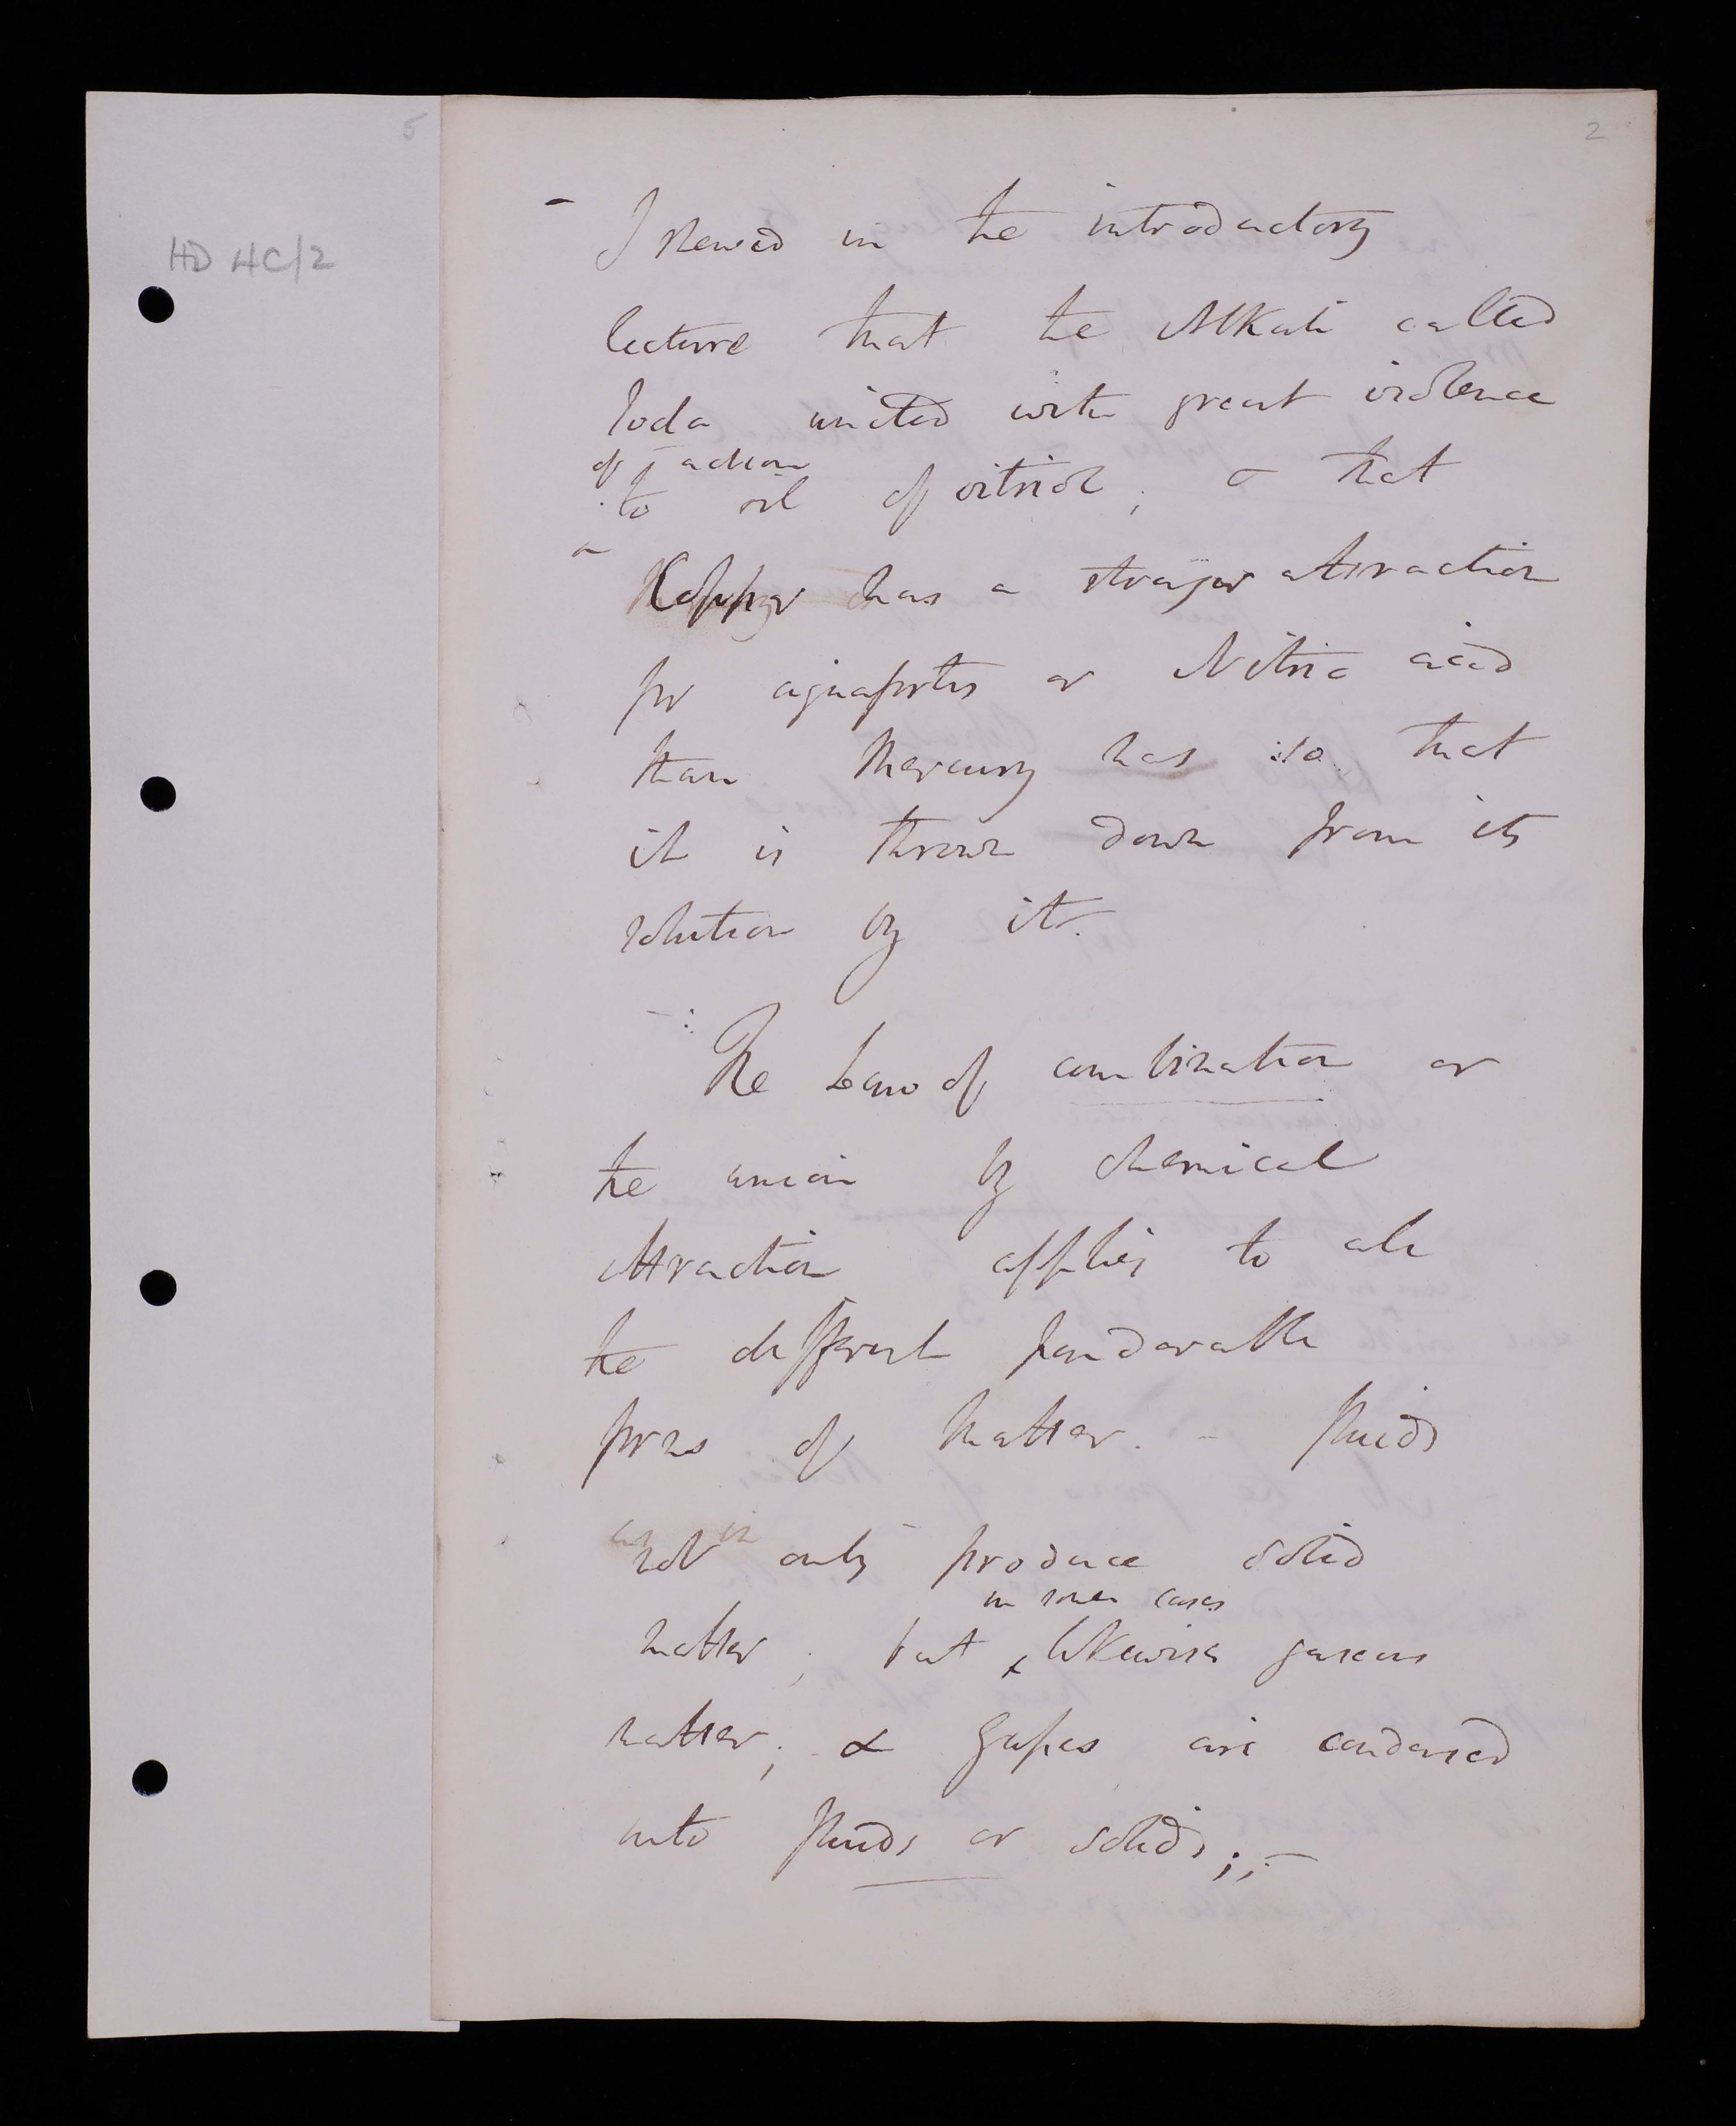 5
2
HD 4C/2
- I shewed in the introductory
lecture that the Alkali called
Soda united with great violence
of action
to oil of vitriol; & that
Copper has a stronger attraction
for aquafortis or Nitric acid
than Mercury has so that
it is thrown down from its
solution by it.
- The Law of combination or
the union by chemical
Attraction applies to all
the different ponderable
forms of matter. - fluids
not only produce solid
in some cases
matter; but x likewise gaseous
matter; & Gases are condensed
into fluids or solids; -